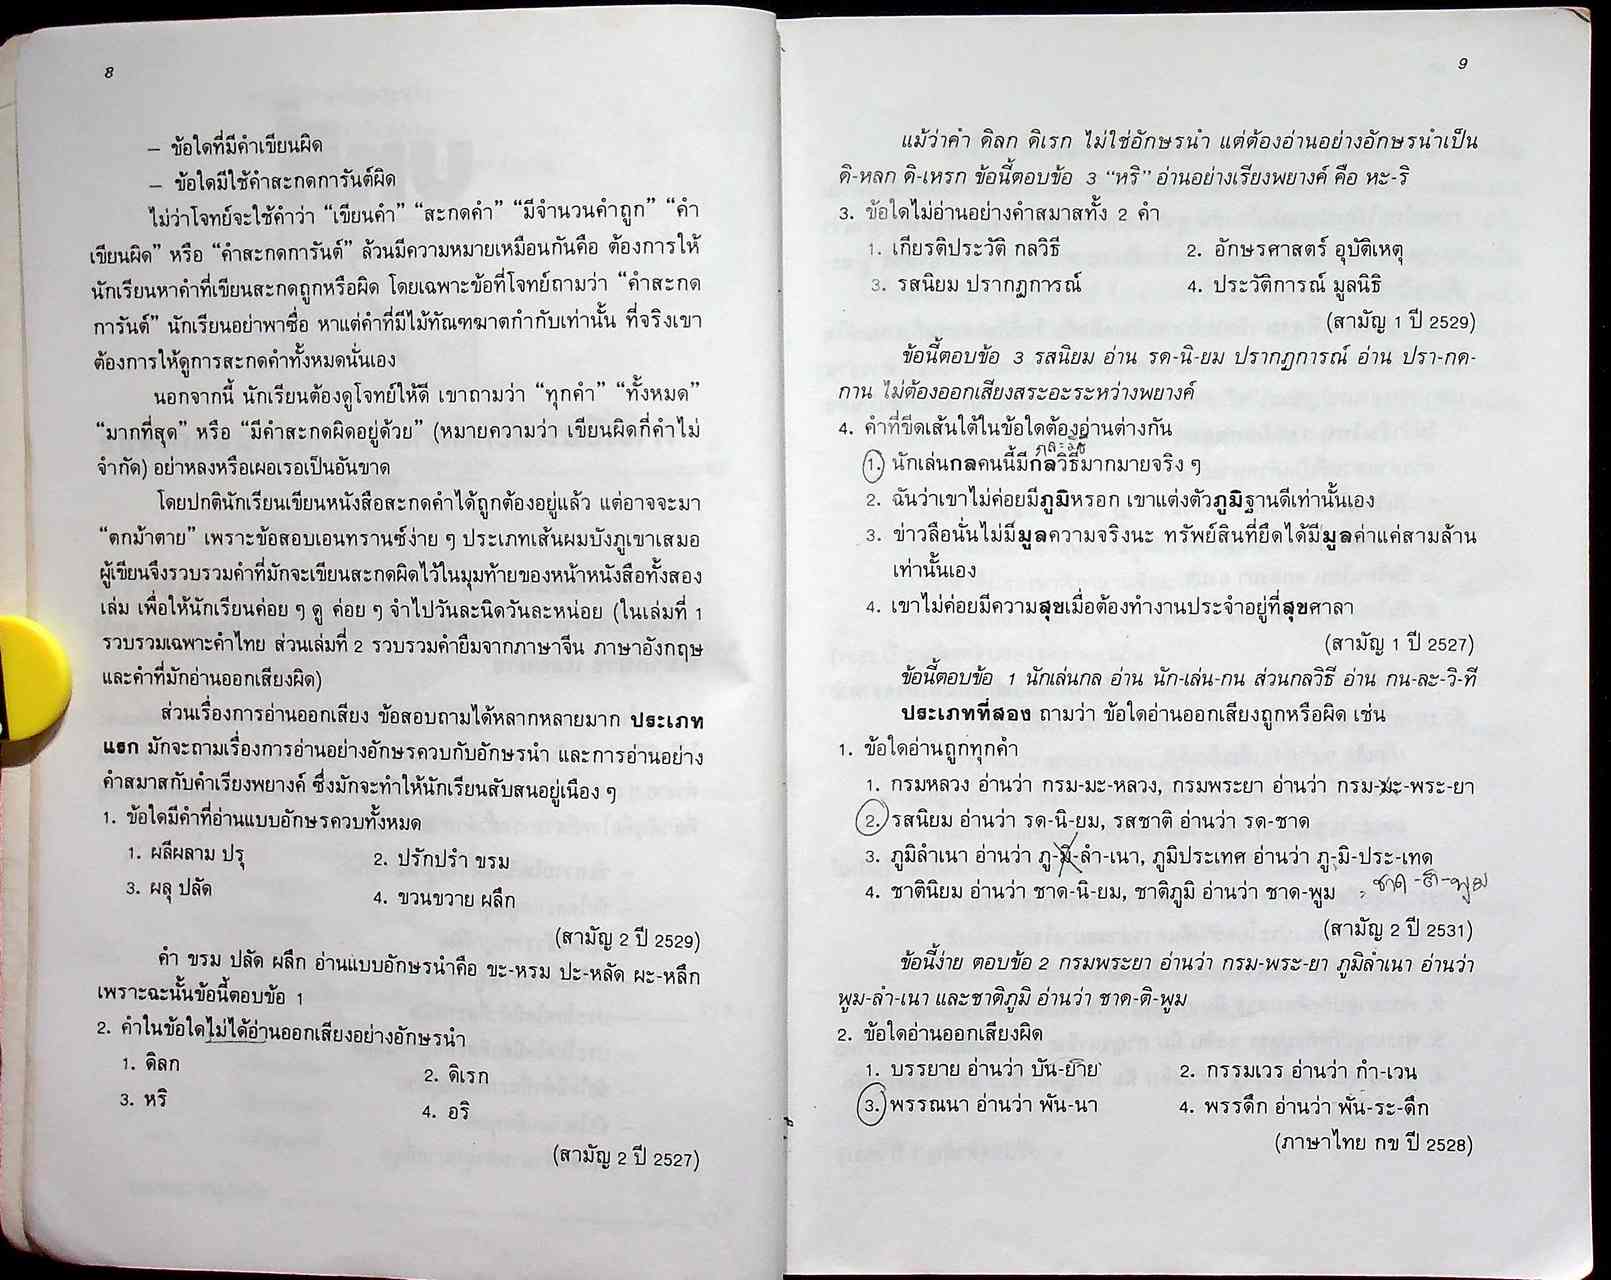 8
– ข้อใดที่มีคำเขียนผิด
– ข้อใดมีใช้คำสะกดการันต์ผิด
ไม่ว่าโจทย์จะใช้คำว่า “เขียนคำ” “สะกดคำ” “มีจำนวนคำถูก” “คำ
เขียนผิด” หรือ “คำสะกดการันต์” ล้วนมีความหมายเหมือนกันคือ ต้องการให้
นักเรียนหาคำที่เขียนสะกดถูกหรือผิด โดยเฉพาะข้อที่โจทย์ถามว่า “คำสะกด
การันต์” นักเรียนอย่าพาซื่อ หาแต่คำที่มีไม้ทัณฑฆาตกำกับเท่านั้น ที่จริงเขา
ต้องการให้ดูการสะกดคำทั้งหมดนั่นเอง
นอกจากนี้ นักเรียนต้องดูโจทย์ให้ดี เขาถามว่า “ทุกคำ” “ทั้งหมด”
“มากที่สุด” หรือ “มีคำสะกดผิดอยู่ด้วย” (หมายความว่า เขียนผิดกี่คำไม่
จำกัด) อย่าหลงหรือเผอเรอเป็นอันขาด
โดยปกตินักเรียนเขียนหนังสือสะกดคำได้ถูกต้องอยู่แล้ว แต่อาจจะมา
“ตกม้าตาย” เพราะข้อสอบเอนทรานซ์ง่าย ๆ ประเภทเส้นผมบังภูเขาเสมอ
ผู้เขียนจึงรวบรวมคำที่มักจะเขียนสะกดผิดไว้ในมุมท้ายของหน้าหนังสือทั้งสอง
เล่ม เพื่อให้นักเรียนค่อย ๆ ดู ค่อย ๆ จำไปวันละนิดวันละหน่อย (ในเล่มที่ 1
รวบรวมเฉพาะคำไทย ส่วนเล่มที่ 2 รวบรวมคำยืมจากภาษาจีน ภาษาอังกฤษ
และคำที่มักอ่านออกเสียงผิด)
ส่วนเรื่องการอ่านออกเสียง ข้อสอบถามได้หลากหลายมาก ประเภท
แรก มักจะถามเรื่องการอ่านอย่างอักษรควบกับอักษรนำ และการอ่านอย่าง
คำสมาสกับคำเรียงพยางค์ ซึ่งมักจะทำให้นักเรียนสับสนอยู่เนือง ๆ
1. ข้อใดมีคำที่อ่านแบบอักษรควบทั้งหมด
1. ผลีผลาม ปรุ 2. ปรักปรำ ขรม
3. ผลุ ปลัด 4. ขวนขวาย ผลึก
(สามัญ 2 ปี 2529)
คำ ขรม ปลัด ผลึก อ่านแบบอักษรนำคือ ขะ-หรม ปะ-หลัด ผะ-หลึก
เพราะฉะนั้นข้อนี้ตอบข้อ 1
2. คำในข้อใดไม่ได้อ่านออกเสียงอย่างอักษรนำ
1. ดิลก 2. ดิเรก
3. หริ 4. อริ
(สามัญ 2 ปี 2527)
9
แม้ว่าคำ ดิลก ดิเรก ไม่ใช่อักษรนำ แต่ต้องอ่านอย่างอักษรนำเป็น
ดิ-หลก ดิ-เหรก ข้อนี้ตอบข้อ 3 “หริ” อ่านอย่างเรียงพยางค์ คือ หะ-ริ
3. ข้อใดไม่อ่านอย่างคำสมาสทั้ง 2 คำ
1. เกียรติประวัติ กลวิธี 2. อักษรศาสตร์ อุบัติเหตุ
3. รสนิยม ปรากฏการณ์ 4. ประวัติการณ์ มูลนิธิ
(สามัญ 1 ปี 2529)
ข้อนี้ตอบข้อ 3 รสนิยม อ่าน รด-นิ-ยม ปรากฏการณ์ อ่าน ปรา-กด-
กาน ไม่ต้องออกเสียงสระอะระหว่างพยางค์
4. คำที่ขีดเส้นใต้ในข้อใดต้องอ่านต่างกัน
1. นักเล่นกลคนนี้มีกลวิธีมากมายจริง ๆ
2. ฉันว่าเขาไม่ค่อยมีภูมิหรอก เขาแต่งตัวภูมิฐานดีเท่านั้นเอง
3. ข่าวลือนั่นไม่มีมูลความจริงนะ ทรัพย์สินที่ยึดได้มีมูลค่าแค่สามล้าน
เท่านั้นเอง
4. เขาไม่ค่อยมีความสุขเมื่อต้องทำงานประจำอยู่ที่สุขศาลา
(สามัญ 1 ปี 2527)
ข้อนี้ตอบข้อ 1 นักเล่นกล อ่าน นัก-เล่น-กน ส่วนกลวิธี อ่าน กน-ละ-วิ-ที
ประเภทที่สอง ถามว่า ข้อใดอ่านออกเสียงถูกหรือผิด เช่น
1. ข้อใดอ่านถูกทุกคำ
1. กรมหลวง อ่านว่า กรม-มะ-หลวง, กรมพระยา อ่านว่า กรม-มะ-พระ-ยา
2. รสนิยม อ่านว่า รด-นิ-ยม, รสชาติ อ่านว่า รด-ชาด
3. ภูมิลำเนา อ่านว่า ภู-มิ-ลำ-เนา, ภูมิประเทศ อ่านว่า ภู-มิ-ประ-เทด
4. ชาตินิยม อ่านว่า ชาด-นิ-ยม, ชาติภูมิ อ่านว่า ชาด-พูม ชาด-ติ-พูม
(สามัญ 2 ปี 2531)
ข้อนี้ง่าย ตอบข้อ 2 กรมพระยา อ่านว่า กรม-พระ-ยา ภูมิลำเนา อ่านว่า
พูม-ลำ-เนา และชาติภูมิ อ่านว่า ชาด-ติ-พูม
2. ข้อใดอ่านออกเสียงผิด
1. บรรยาย อ่านว่า บัน-ยาย 2. กรรมเวร อ่านว่า กำ-เวน
3. พรรณนา อ่านว่า พัน-นา 4. พรรดึก อ่านว่า พัน-ระ-ดึก
(ภาษาไทย กข ปี 2528)